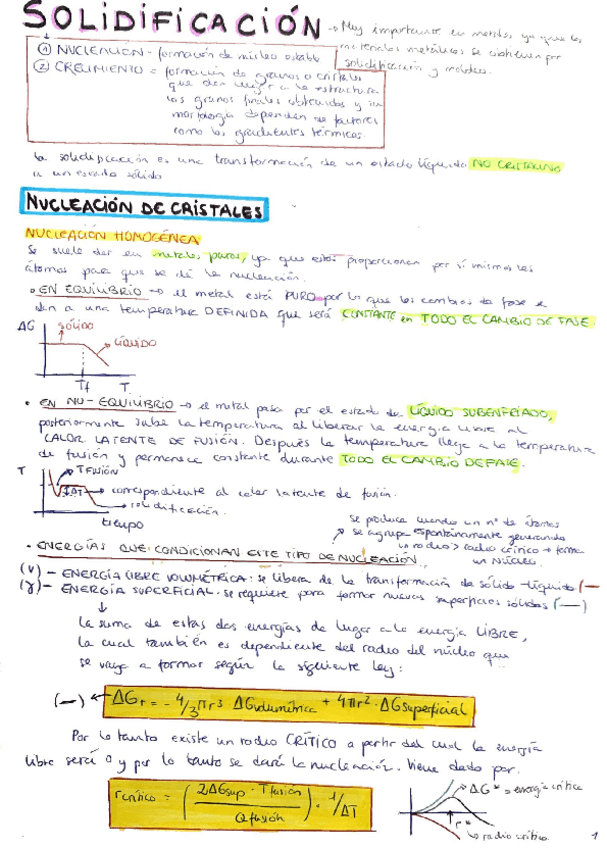 SOLIDIFICACIÓN → Muy importante en metales, ya que los
materiales metálicos se obtienen por
solidificación y moldeo.
① NUCLEACIÓN - formación de núcleo estable
② CRECIMIENTO = formación de granos o cristales
que dan lugar a la estructura
los granos finales obtenidos y su
morfología dependen de factores
como los gradientes térmicos.
la solidificación es una transformación de un estado líquido NO CRISTALINO
a un estado sólido
NUCLEACIÓN DE CRISTALES
NUCLEACIÓN HOMOGÉNEA
Se suele dar en metales puros, ya que estos proporcionan por sí mismos los
átomos para que se dé la nucleación.
• EN EQUILIBRIO → el metal está PURO por lo que los cambios de fase se
dan a una temperatura DEFINIDA que será CONSTANTE en TODO EL CAMBIO DE FASE.
ΔG
SÓLIDO
LÍQUIDO
Tf
T
• EN NO-EQUILIBRIO → el metal pasa por el estado de LÍQUIDO SUBENFRIADO,
posteriormente sube la temperatura al liberar la energía libre al
CALOR LATENTE DE FUSIÓN. Después la temperatura llega a la temperatura
de fusión y permanece constante durante TODO EL CAMBIO DE FASE.
T
T FUSIÓN
ΔT → correspondiente al calor latente de fusión.
→ solidificación.
tiempo
se produce cuando un nº de átomos
se agrupa espontáneamente generando
un radio > radio crítico → forma
un NÚCLEO.
• ENERGÍAS QUE CONDICIONAN ESTE TIPO DE NUCLEACIÓN
(V) - ENERGÍA LIBRE VOLUMÉTRICA: se libera de la transformación de sólido-líquido (-)
(γ) - ENERGÍA SUPERFICIAL: se requiere para formar nuevas superficies sólidas (—)
↓
la suma de estas dos energías da lugar a la energía LIBRE,
la cual también es dependiente del radio del núcleo que
se vaya a formar según la siguiente ley:
(—) ← ΔGr = - 4/3 πr³ ΔGvolumétrica + 4πr² · ΔGsuperficial
Por lo tanto existe un radio CRÍTICO a partir del cual la energía
libre será 0 y por lo tanto se dará la nucleación. Viene dado por.
rcrítico = (2ΔGsup · Tfusión / Qfusión) · 1/ΔT
ΔG* = energía crítica
r*
→ radio crítico
1